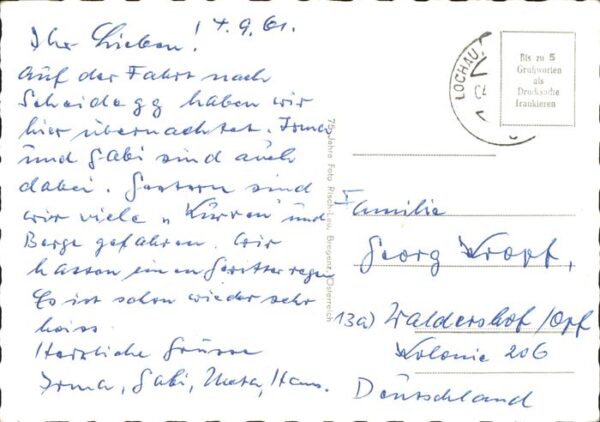 Ihr Lieben! 17.9.61.
Auf der Fahrt nach
Scheidegg haben wir
hier übernachtet. Irma
und Gabi sind auch
dabei. Gestern sind
wir viele „Kurven" und
Berge gefahren. Wir
hatten einen Gewitterregen
Es ist schon wieder sehr
heiss
Herzliche Grüsse
Irma, Gabi, Hans.
75 Jahre Foto Risch-Lau, Bregenz, Österreich
LOCHAU
Bis zu 5
Grußworten
als
Drucksache
frankieren
Familie
Georg Kropf,
13a) Waldershof/Opf
Kolonie 206
Deutschland